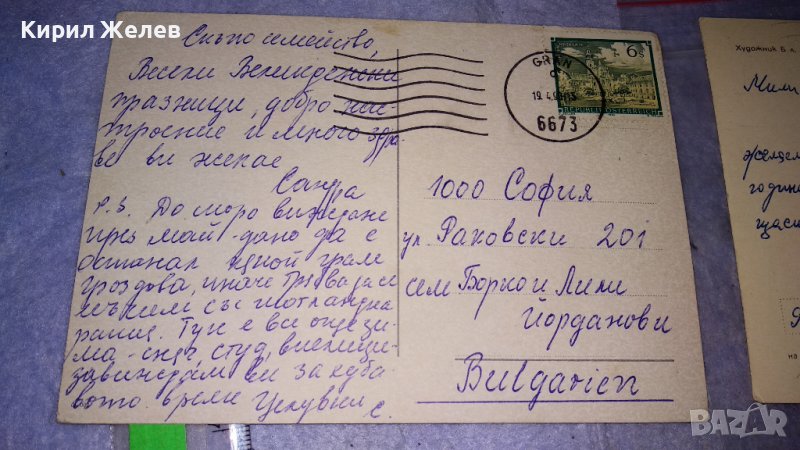 Кирил Желев
Скъпо семейство,
Весели Великденски
празници, добро нас-
троение и много здра-
ве ви желае
Санда
P.S. До скоро виждане
през май - дано да е
останал един грам
гроздова, иначе трябва да се
с шотландка
Тук е все още зи-
ма - сняг, студ, виелици
завиждам ви за хуба-
вото време Целувки С.
GRÄN
19.4.
6673
6 S
REPUBLIK ÖSTERREICH
1000 София
ул Раковски 201
сем Борко и Лили
Йорданови
Bulgarien
Художник Б.
Мили
желаем
годин
щаст
на
BAZAR